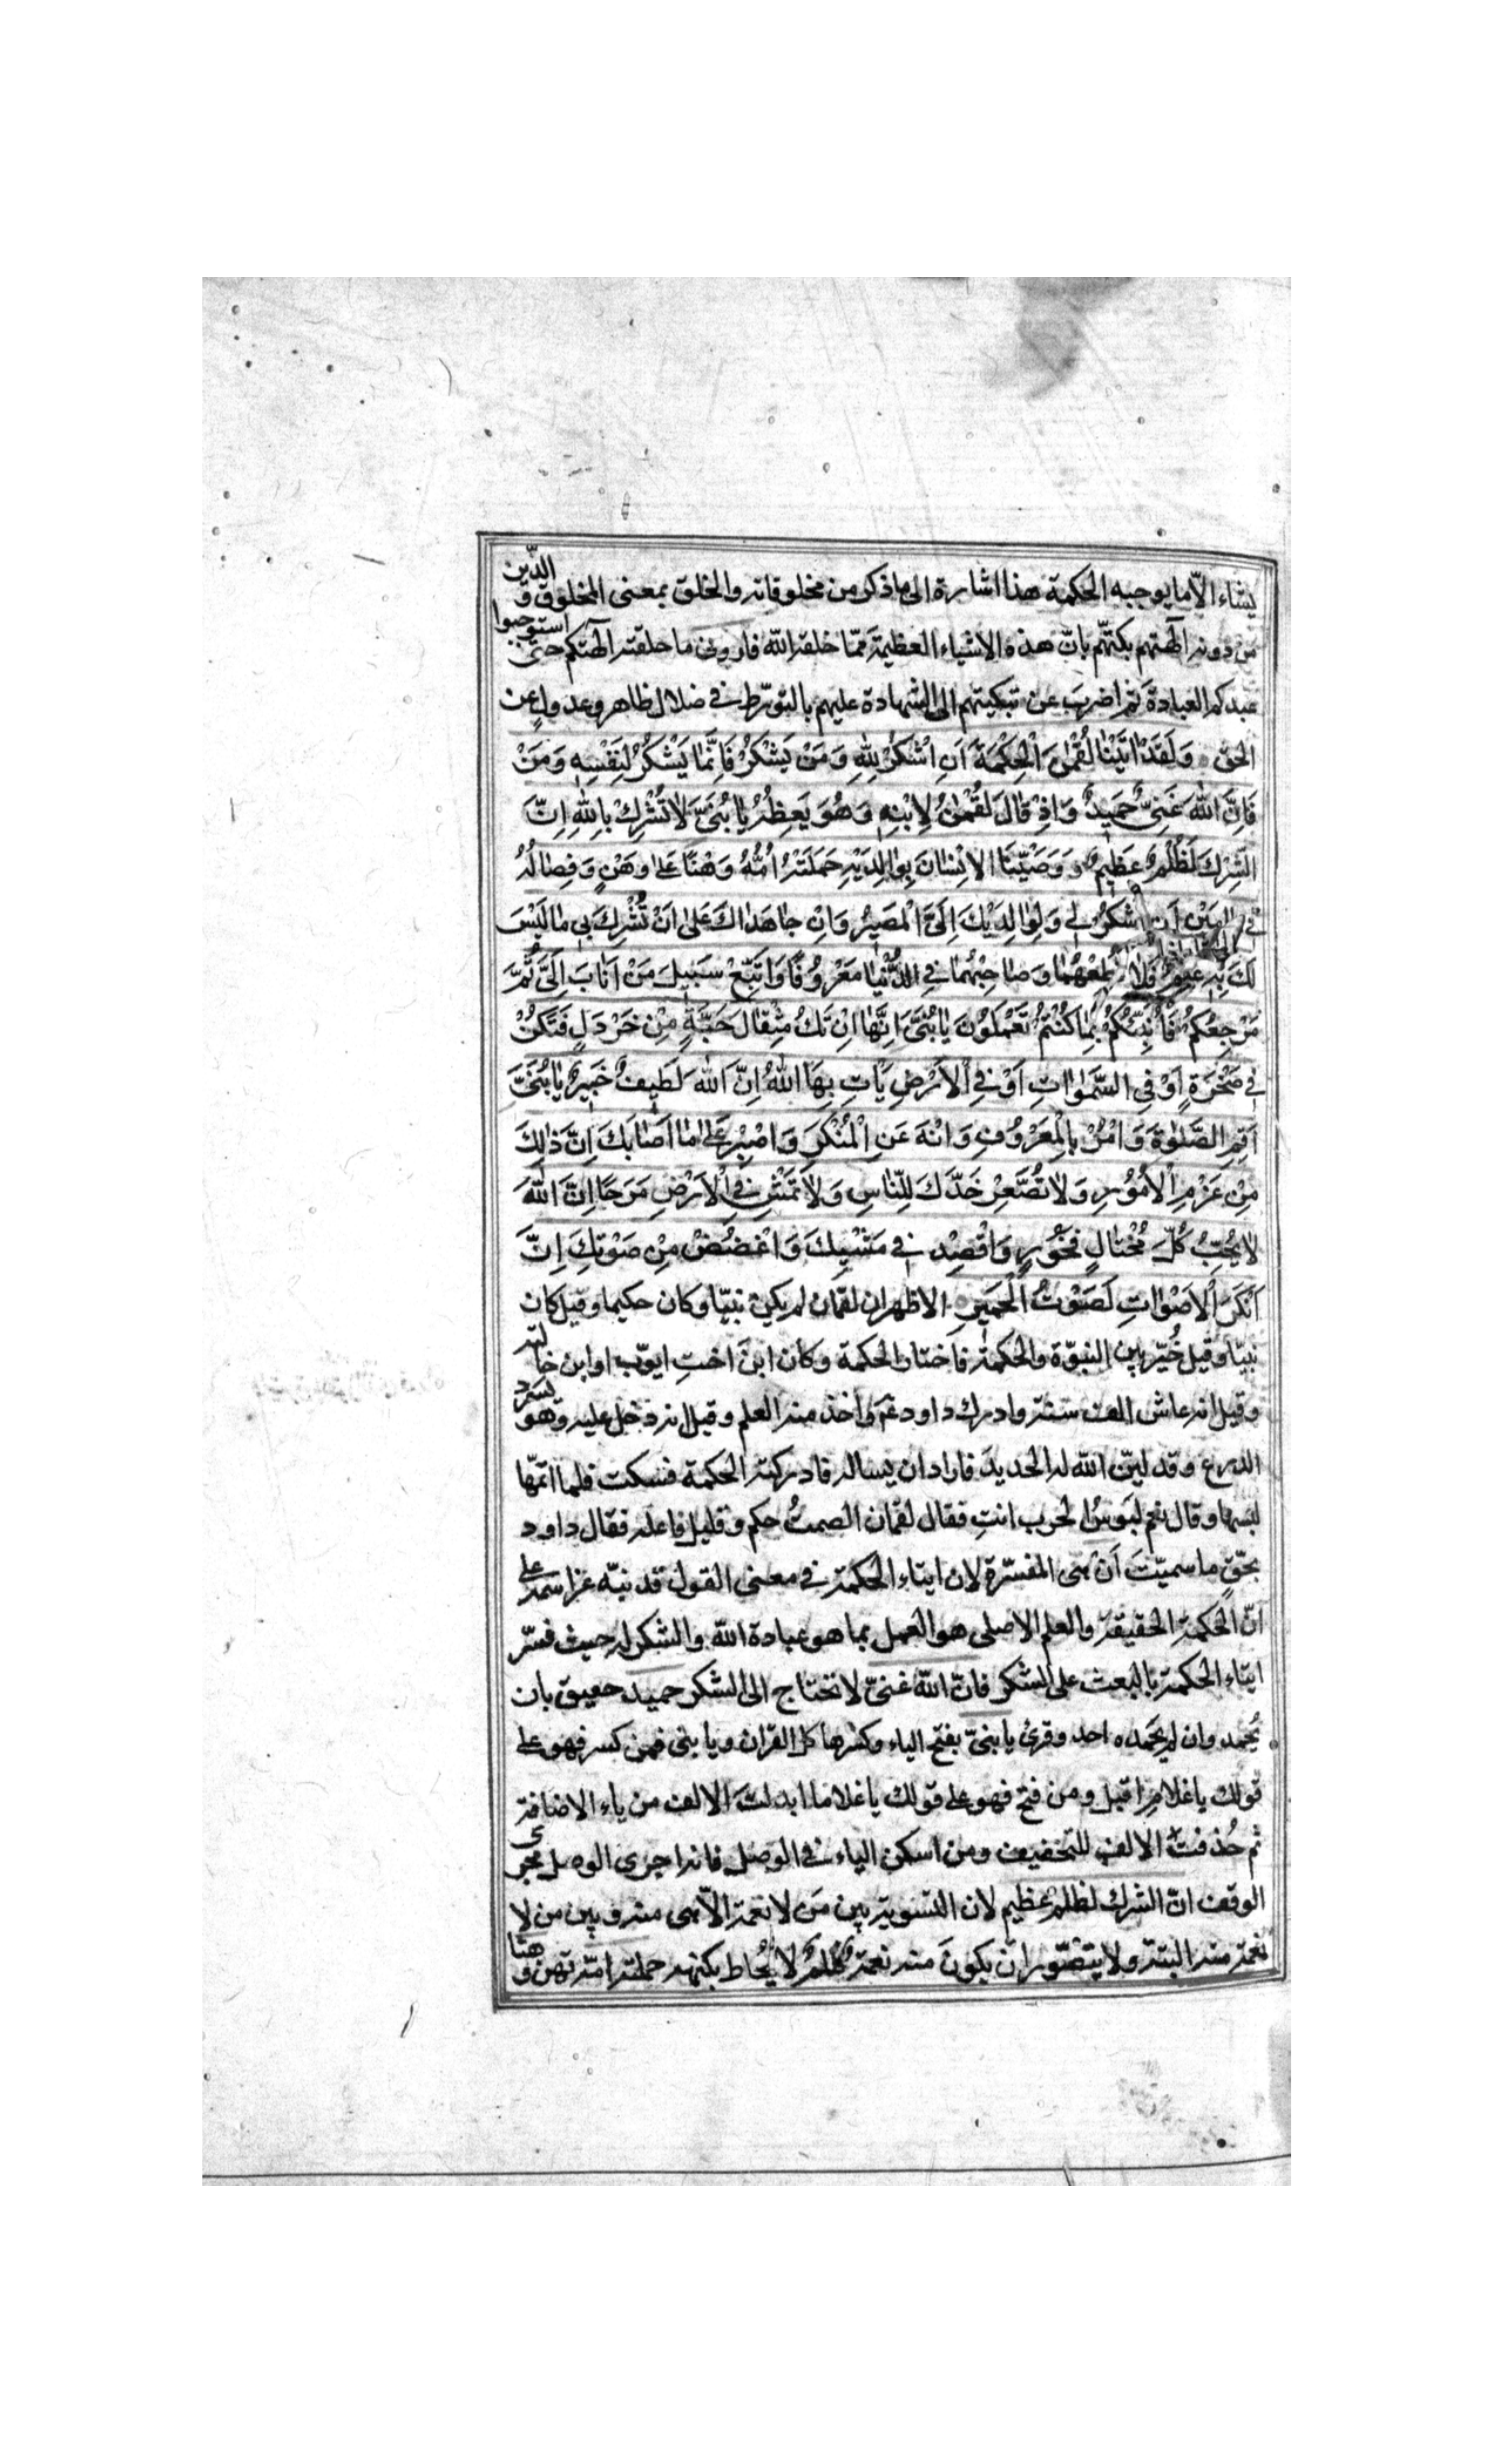 يشاء الّا ما يوجبه الحكمة هذا اشارة الى ما ذكر من مخلوقاته والخلق بمعنى المخلوق و الّذين
من دونه آلهتهم بكتهم بانّ هذه الاشياء العظيمة ممّا خلقه الله فارونى ما خلقته آلهتكم حتى استوجبوا
عندكم العبادة ثم اضرب عن تبكيتهم الى الشهادة عليهم بالتورّط فى ضلال ظاهر وعدول عن
الحق وَلَقَدْ اٰتَيْنٰا لُقْمٰنَ الْحِكْمَةَ اَنِ اشْكُرْ لِلّٰهِ وَمَنْ يَشْكُرْ فَاِنَّمٰا يَشْكُرُ لِنَفْسِهِ وَمَنْ
فَاِنَّ اللّٰهَ غَنِىٌّ حَمِيدٌ وَاِذْ قٰالَ لُقْمٰنُ لِابْنِهِ وَهُوَ يَعِظُهُ يٰا بُنَىَّ لٰا تُشْرِكْ بِاللّٰهِ اِنَّ
الشِّرْكَ لَظُلْمٌ عَظِيمٌ وَوَصَّيْنَا الْاِنْسٰانَ بِوٰالِدَيْهِ حَمَلَتْهُ اُمُّهُ وَهْنًا عَلىٰ وَهْنٍ وَفِصٰالُهُ
فِى اَنِ اشْكُرْ لِى وَلِوٰالِدَيْكَ اِلَىَّ الْمَصِيرُ وَاِنْ جٰاهَدٰاكَ عَلىٰ اَنْ تُشْرِكَ بِى مٰا لَيْسَ
لَكَ بِهِ عِلْمٌ فَلٰا تُطِعْهُمٰا وَصٰاحِبْهُمٰا فِى الدُّنْيٰا مَعْرُوفًا وَاتَّبِعْ سَبِيلَ مَنْ اَنٰابَ اِلَىَّ ثُمَّ
مَرْجِعُكُمْ فَاُنَبِّئُكُمْ بِمٰا كُنْتُمْ تَعْمَلُونَ يٰا بُنَىَّ اِنَّهٰا اِنْ تَكُ مِثْقٰالَ حَبَّةٍ مِنْ خَرْدَلٍ فَتَكُنْ
فِى صَخْرَةٍ اَوْ فِى السَّمٰوٰاتِ اَوْ فِى الْاَرْضِ يَاْتِ بِهَا اللّٰهُ اِنَّ اللّٰهَ لَطِيفٌ خَبِيرٌ يٰا بُنَىَّ
اَقِمِ الصَّلٰوةَ وَاْمُرْ بِالْمَعْرُوفِ وَانْهَ عَنِ الْمُنْكَرِ وَاصْبِرْ عَلىٰ مٰا اَصٰابَكَ اِنَّ ذٰلِكَ
مِنْ عَزْمِ الْاُمُورِ وَلٰا تُصَعِّرْ خَدَّكَ لِلنّٰاسِ وَلٰا تَمْشِ فِى الْاَرْضِ مَرَحًا اِنَّ اللّٰهَ
لٰا يُحِبُّ كُلَّ مُخْتٰالٍ فَخُورٍ وَاقْصِدْ فِى مَشْيِكَ وَاغْضُضْ مِنْ صَوْتِكَ اِنَّ
اَنْكَرَ الْاَصْوٰاتِ لَصَوْتُ الْحَمِيرِ الاظهر ان لقمان لم يكن نبيّا وكان حكيما وقيل كان
نبيّا وقيل خُيّر بين النبوّة والحكمة فاختار الحكمة وكان ابنَ اختِ ايوّب او ابن خالته
وقيل انه عاش الف سنة وادرك داود عم واخذ منه العلم وقيل انه دخل عليه وهو يسرد
الدرع وقد ليّن الله له الحديد فاراد ان يساله فادركته الحكمة فسكت فلما اتمّها
لبسها وقال نعم لَبوسُ الحرب انتِ فقال لقمان الصمتُ حكم وقليل فاعله فقال داود
بحّقٍ ما سميّتَ اَن هى المفسّرة لان ايتاء الحكمة فى معنى القول قد نبّه عز اسمه على
انّ الحكمة الحقيقة والعلم الاصلى هو العمل بما هو عبادة الله والشكر له حيث فسّر
ايتاء الحكمة بالبعث على الشكر فانّ الله غنىّ لا تحتاج الى الشكر حميد حقيق بان
يُحمد وان لم يحمده احد وقرئ يا بنىّ بفتح الياء وكسرها كل القران ويا بنى فمن كسر فهو على
قولك يا غلامِ اقبل ومن فتح فهو على قولك يا غلاما ابدلت الالف من ياء الاضافة
ثم حُذفت الالف للتخفيف ومن اسكن الياء فى الوصل فانه اجرى الوصل مجرى
الوقف انّ الشرك لظلمٌ عظيم لان التسوية بين مَن لا نعمة الّا هى منه وبين من لا
نعمة منه البتة ولا يتصّور ان يكونَ منه نعمة ظلمٌ لا يُحاط بكنهه حملته امّه تهن وهنا